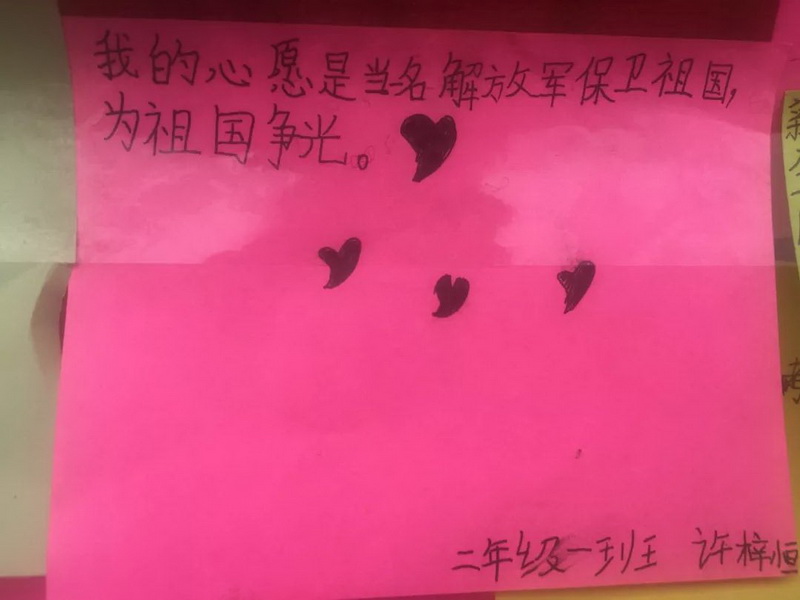 我的心愿是当名解放军保卫祖国,
为祖国争光。
二年级一班 许梓恒